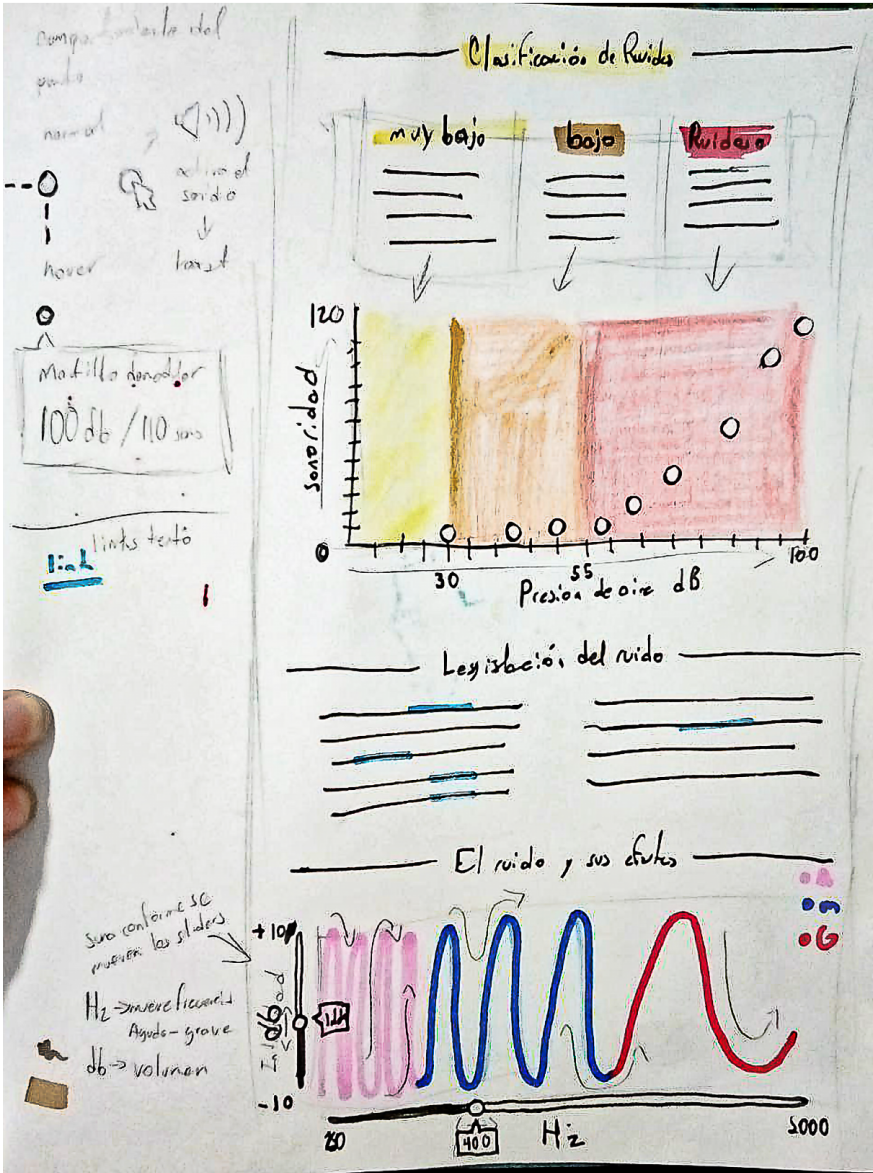 comportamiento del
punto
normal
activa el
sonido
hover
Martillo demoledor
100 db / 110 sons
links texto
link
Clasificación de Ruidos
muy bajo
bajo
Ruidoso
120
sonoridad
0
30
55
100
Presion de aire dB
Legislación del ruido
El ruido y sus efectos
A
m
G
suna conforme se
mueven los sliders
Hz → mueve frecuencia
Agudo - grave
db → volumen
+10
db
-10
400
Hz
5000